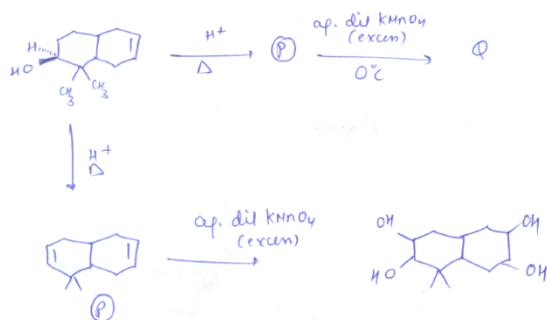 H
HO
CH3
CH3
H+
Δ
P
aq. dil KMnO4
(excess)
0°C
Q
H+
Δ
P
aq. dil KMnO4
(excess)
OH
HO
OH
OH